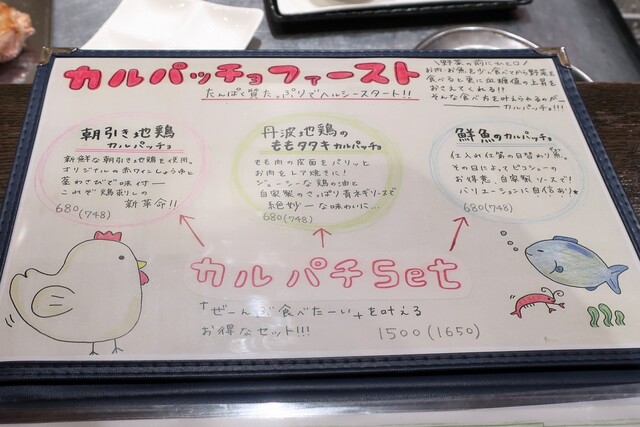 カルパッチョファースト
たんぱく質たっぷりでヘルシースタート!!
\野菜の前にひと口/
お肉・お魚を少し食べてから野菜を
食べると更に血糖値の上昇を
おさえてくれる!!
そんな食べ方を叶えられるのが…
カルパッチョ!!!
朝引き地鶏
カルパッチョ
新鮮な朝引き地鶏を使用。
オリジナルの赤ワインしょうゆと
茎わさびで味付—
これぞ鶏刺しの
新革命!!
680(748)
丹波地鶏の
ももタタキカルパッチョ
もも肉の皮面をパリッと
お肉をレア焼きに!
ジューシーな鶏の油と
自家製のさっぱり青ネギソースで
絶妙ーな味わいに…
680(748)
鮮魚のカルパッチョ
仕入れ仕第の日替わり魚。
その日によってピコシューの
お得意、自家製ソースで!
バリエーションに自信あり★
680(748)
カルパチSet
「ぜーんぶ食べたーい」を叶える
お得なセット!!!
1500(1650)